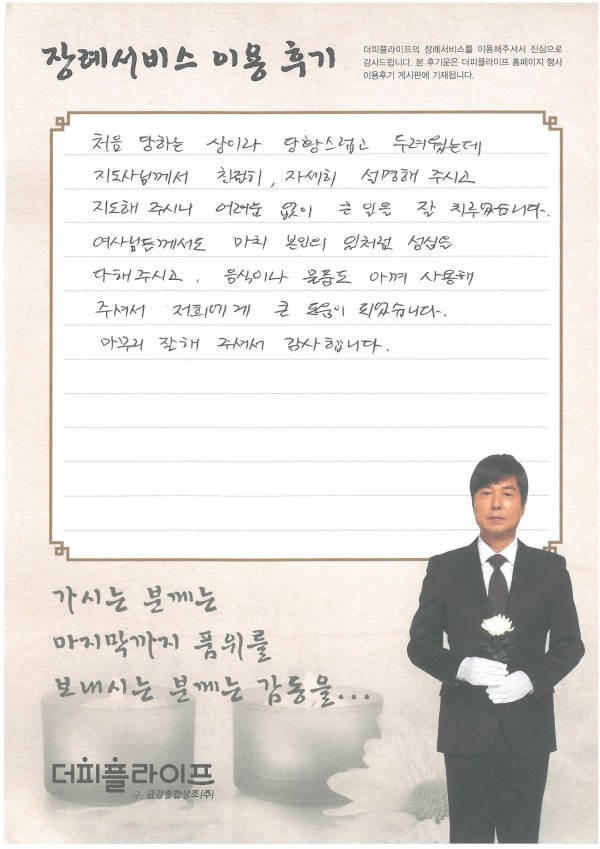 장례서비스 이용 후기
더피플라이프의 장례서비스를 이용해주셔서 진심으로
감사드립니다. 본 후기문은 더피플라이프 홈페이지 행사
이용후기 게시판에 기재됩니다.
처음 당하는 상이라 당황스럽고 두려웠는데
지도사님께서 친절히, 자세히 설명해 주시고
지도해 주시니 어려움 없이 큰 일을 잘 치루었습니다.
여사님들께서도 마치 본인의 일처럼 정성을
다해주시고, 음식이나 물품도 아껴 사용해
주셔서 저희에게 큰 도움이 되었습니다.
마무리 잘해 주셔서 감사합니다.
가시는 분께는
마지막까지 품위를
보내시는 분께는 감동을...
더피플라이프
구. 금강종합상조(주)